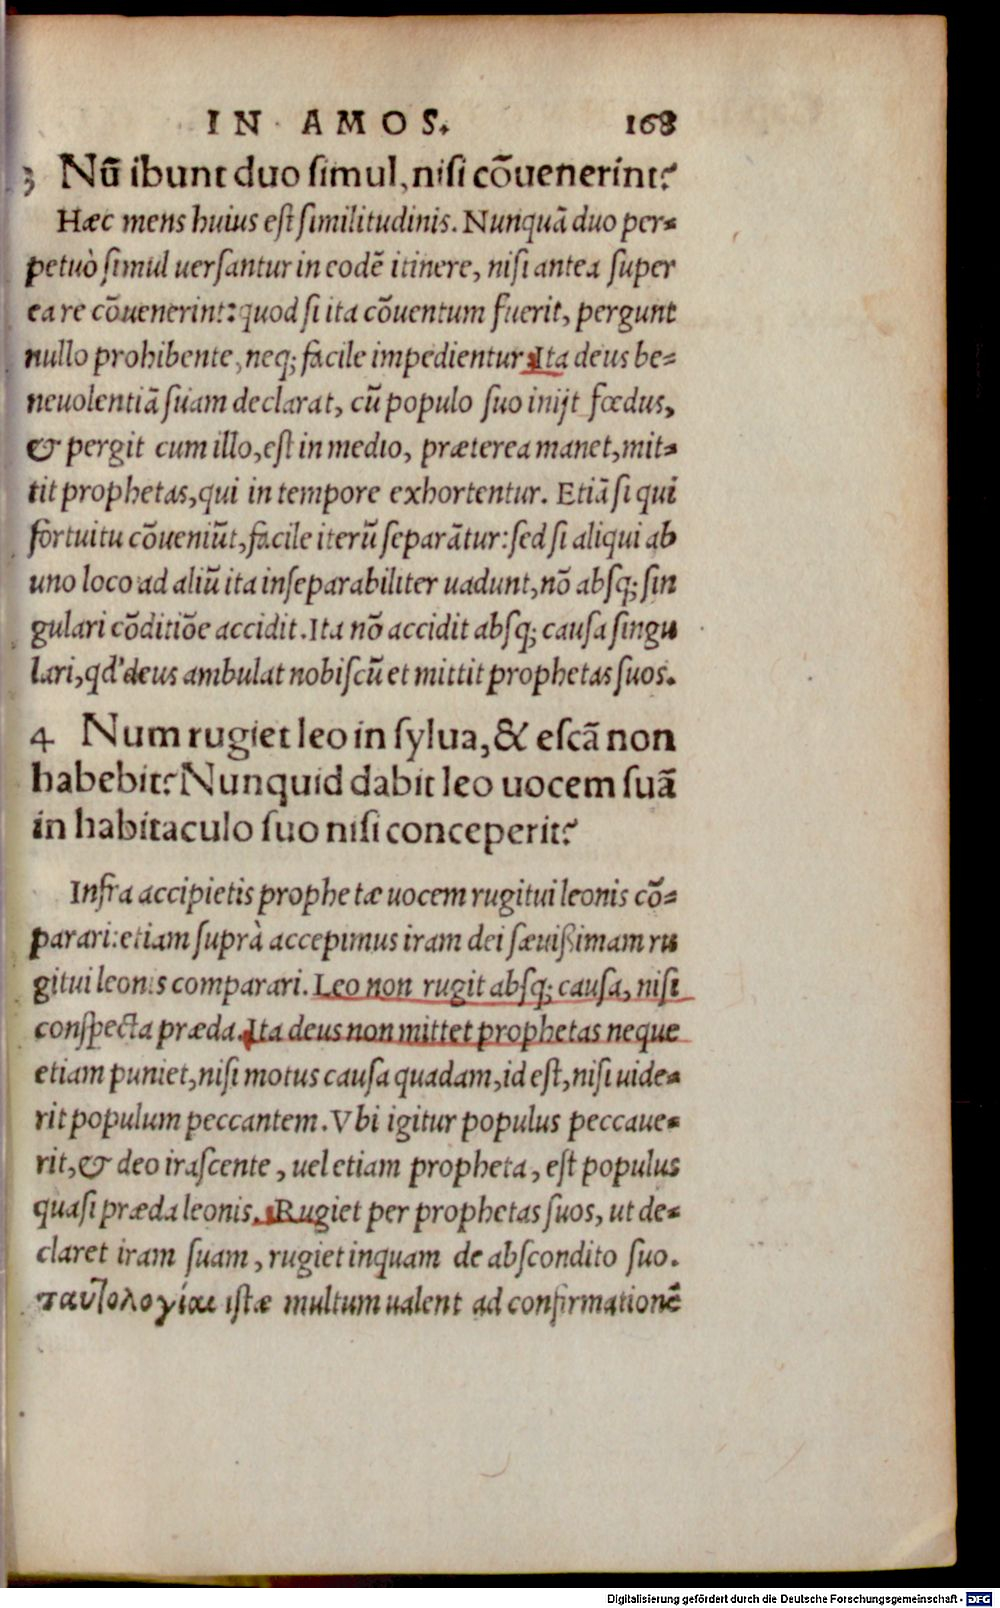 IN AMOS. 168
3 Nũ ibunt duo ſimul, niſi cõuenerint?
Hæc mens huius eſt ſimilitudinis. Nunquã duo per-
petuò ſimul uerſantur in eodẽ itinere, niſi antea ſuper
ea re cõuenerint: quod ſi ita cõuentum fuerit, pergunt
nullo prohibente, neq; facile impedientur. Ita deus be-
neuolentiã ſuam declarat, cũ populo ſuo inijt fœdus,
& pergit cum illo, eſt in medio, præterea manet, mit-
tit prophetas, qui in tempore exhortentur. Etiã ſi qui
fortuitu cõueniũt, facile iterũ ſeparãtur: ſed ſi aliqui ab
uno loco ad aliũ ita inſeparabiliter uadunt, nõ abſq; ſin
gulari cõditiõe accidit. Ita nõ accidit abſq; cauſa ſingu
lari, qd' deus ambulat nobiſcũ et mittit prophetas ſuos.
4 Num rugiet leo in ſylua, & eſcã non
habebit? Nunquid dabit leo uocem ſuã
in habitaculo ſuo niſi conceperit?
Infra accipietis prophetæ uocem rugitui leonis cõ-
parari: etiam ſuprà accepimus iram dei ſæuißimam ru
gitui leonis comparari. Leo non rugit abſq; cauſa, niſi
conſpecta præda. Ita deus non mittet prophetas neque
etiam puniet, niſi motus cauſa quadam, id eſt, niſi uide-
rit populum peccantem. Vbi igitur populus peccaue-
rit, & deo iraſcente, uel etiam propheta, eſt populus
quaſi præda leonis. Rugiet per prophetas ſuos, ut de-
claret iram ſuam, rugiet inquam de abſcondito ſuo.
ταυτολογίαι iſtæ multum ualent ad confirmationẽ
Digitalisierung gefördert durch die Deutsche Forschungsgemeinschaft - DFG